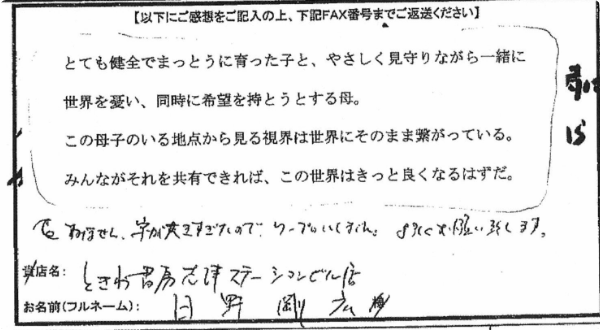 【以下にご感想をご記入の上、下記FAX番号までご返送ください】
とても健全でまっとうに育った子と、やさしく見守りながら一緒に
世界を憂い、同時に希望を持とうとする母。
この母子のいる地点から見る視界は世界にそのまま繋がっている。
みんながそれを共有できれば、この世界はきっと良くなるはずだ。
すみません、字が大きすぎたので、ワープロにしました。よろしくお願い致します。
貴店名: ときわ書房志津ステーションビル店
お名前(フルネーム): 日野剛広